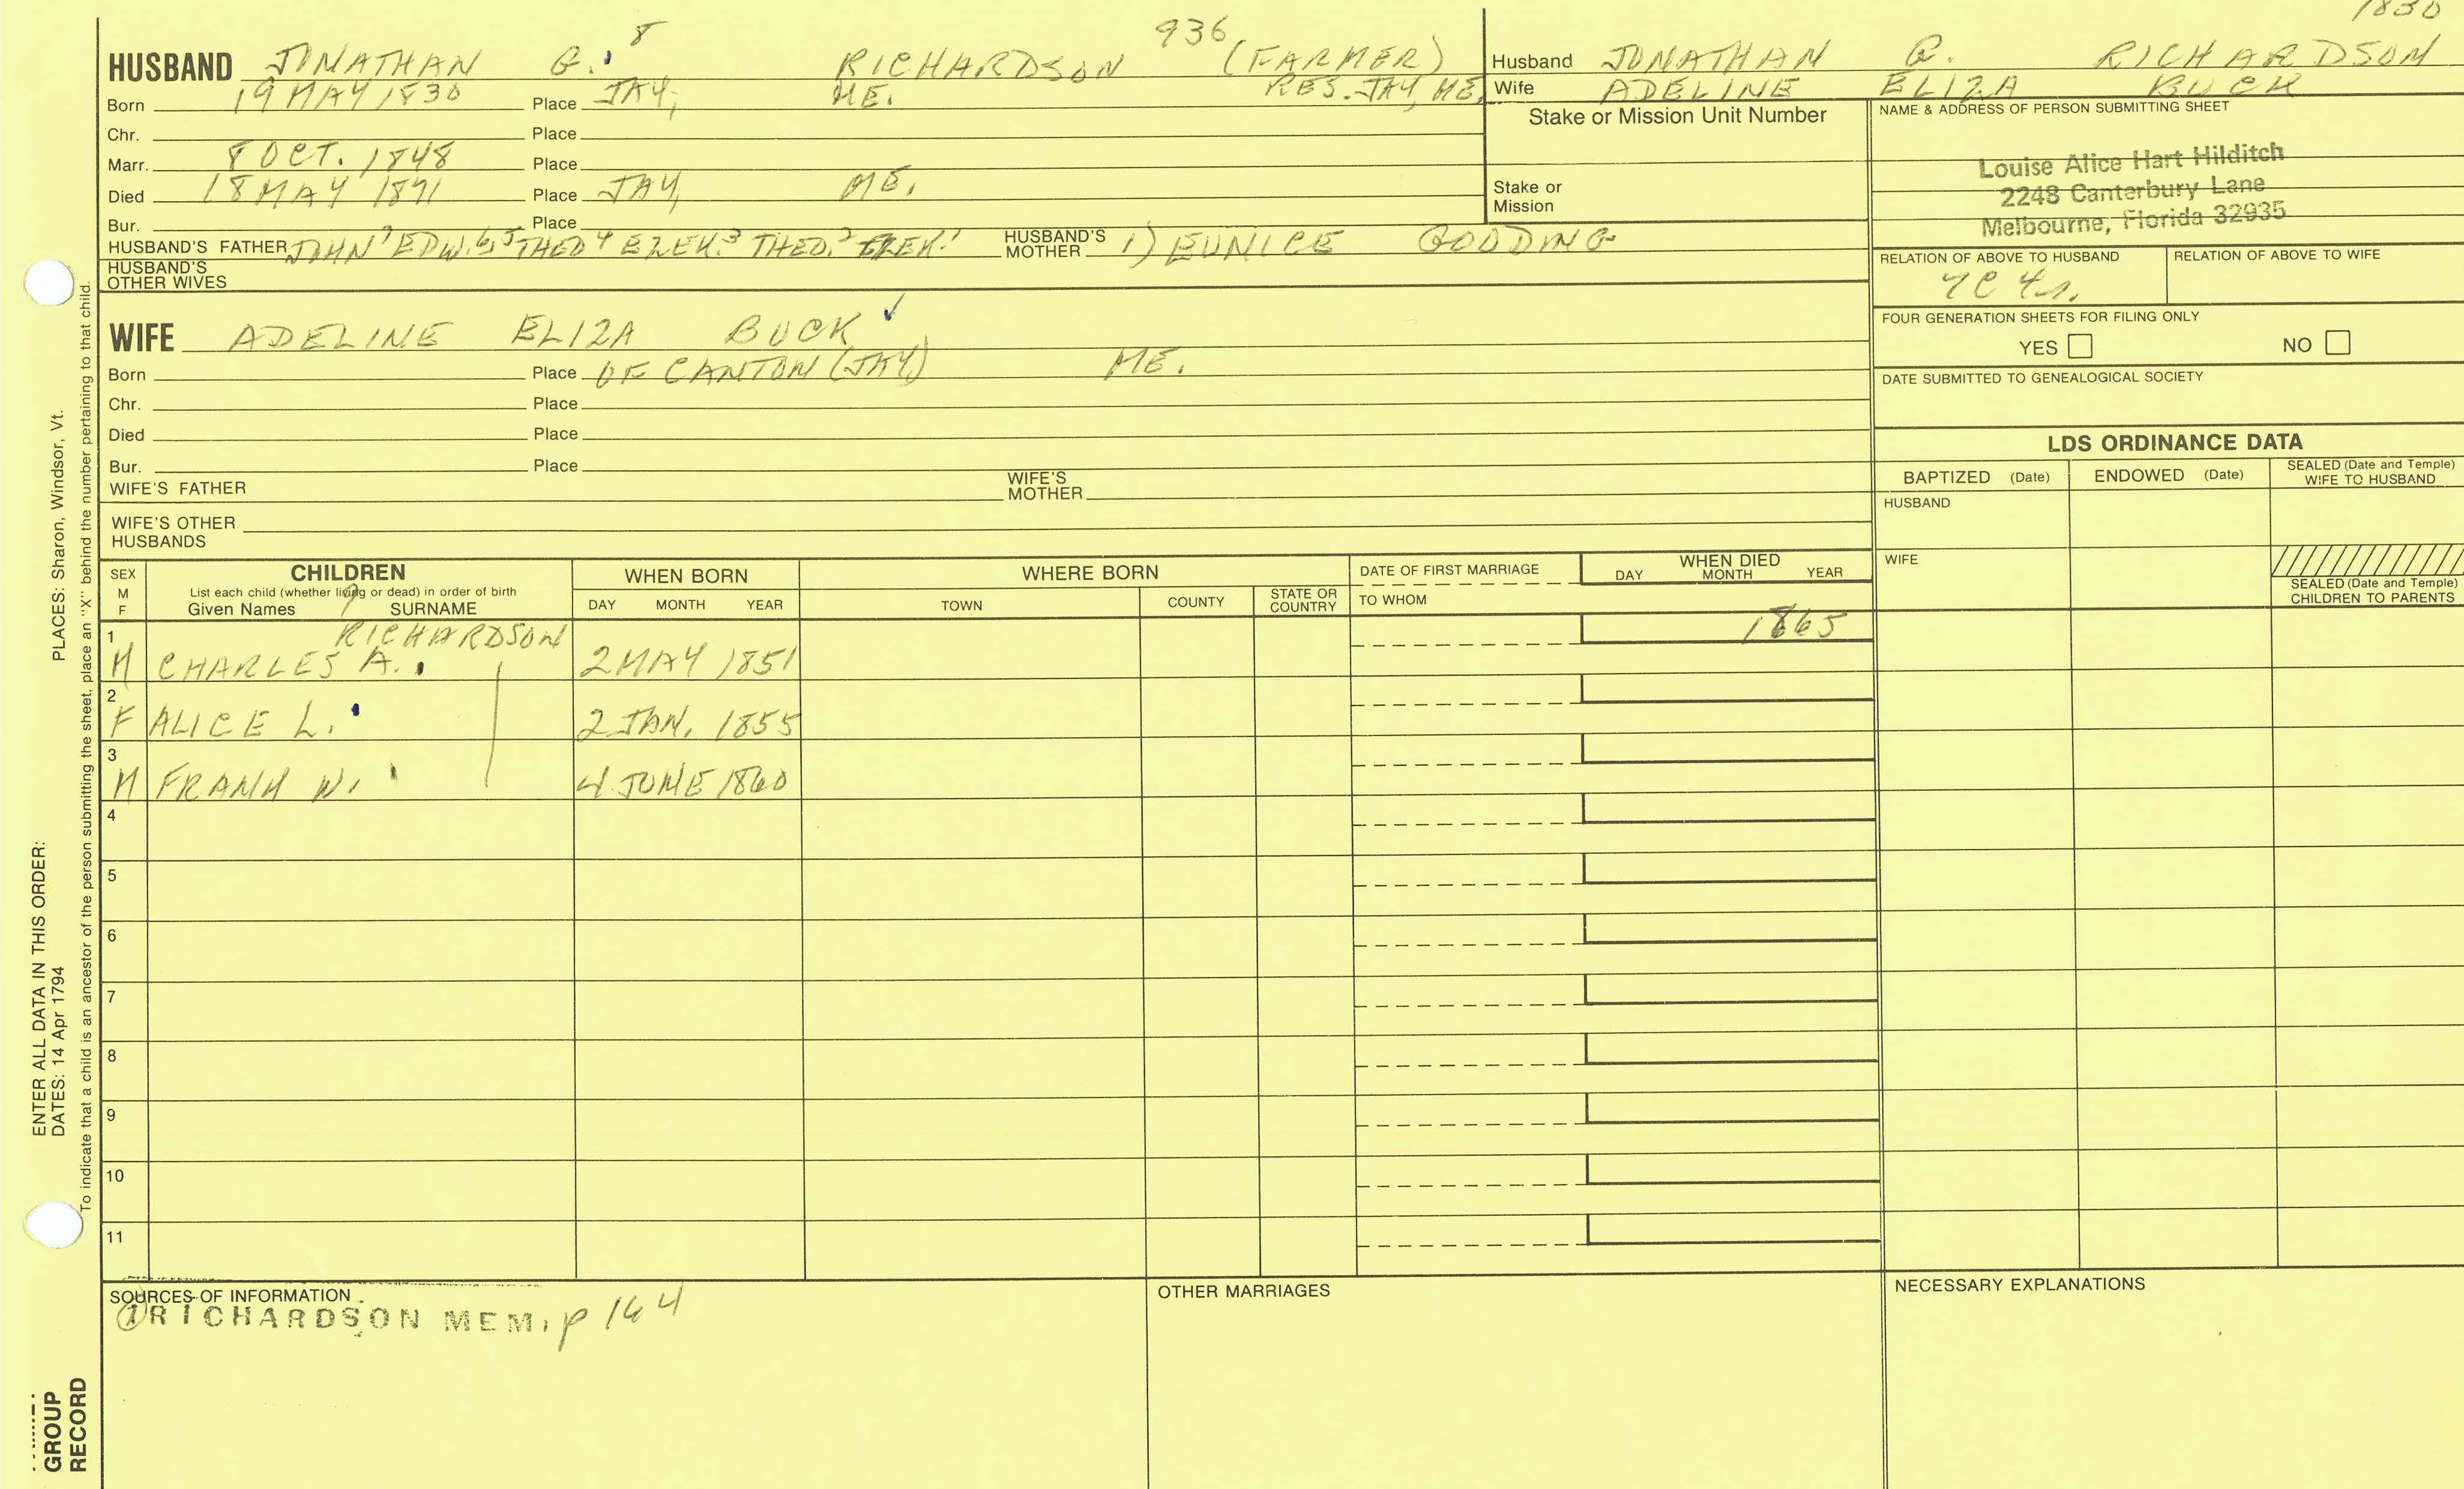 1830
HUSBAND JONATHAN G. 8 RICHARDSON 936 (FARMER)
Born 19 MAY 1830 Place JAY, ME. RES. JAY, ME.
Chr. Place
Marr. 8 OCT. 1848 Place
Died 18 MAY 1871 Place JAY, ME.
Bur. Place
HUSBAND'S FATHER JOHN 7 EDW. 6,5 THED 4 EZEK. 3 THED. 2 EZEK. 1 HUSBAND'S MOTHER 1) EUNICE GODDING
HUSBAND'S OTHER WIVES
Husband JONATHAN G. RICHARDSON
Wife ADELINE ELIZA BUCK
Stake or Mission Unit Number
Stake or Mission
NAME & ADDRESS OF PERSON SUBMITTING SHEET
Louise Alice Hart Hilditch
2248 Canterbury Lane
Melbourne, Florida 32935
RELATION OF ABOVE TO HUSBAND RELATION OF ABOVE TO WIFE
7C 4r.
FOUR GENERATION SHEETS FOR FILING ONLY
YES NO
DATE SUBMITTED TO GENEALOGICAL SOCIETY
WIFE ADELINE ELIZA BUCK
Born Place OF CANTON (JAY) ME.
Chr. Place
Died Place
Bur. Place
WIFE'S FATHER WIFE'S MOTHER
WIFE'S OTHER HUSBANDS
LDS ORDINANCE DATA
BAPTIZED (Date) ENDOWED (Date) SEALED (Date and Temple) WIFE TO HUSBAND
HUSBAND
WIFE
SEALED (Date and Temple) CHILDREN TO PARENTS
SEX M F
CHILDREN
List each child (whether living or dead) in order of birth
Given Names SURNAME
WHEN BORN
DAY MONTH YEAR
WHERE BORN
TOWN COUNTY STATE OR COUNTRY
DATE OF FIRST MARRIAGE
TO WHOM
WHEN DIED
DAY MONTH YEAR
9
1 RICHARDSON 1865
M CHARLES A. 2 MAY 1851
2
F ALICE L. 2 JAN. 1855
3
M FRANK W. 4 JUNE 1860
4
5
6
7
8
9
10
11
SOURCES OF INFORMATION
① RICHARDSON MEM, p 164
OTHER MARRIAGES
NECESSARY EXPLANATIONS
ENTER ALL DATA IN THIS ORDER:
DATES: 14 Apr 1794 PLACES: Sharon, Windsor, Vt.
To indicate that a child is an ancestor of the person submitting the sheet, place an "X" behind the number pertaining to that child.
GROUP
RECORD